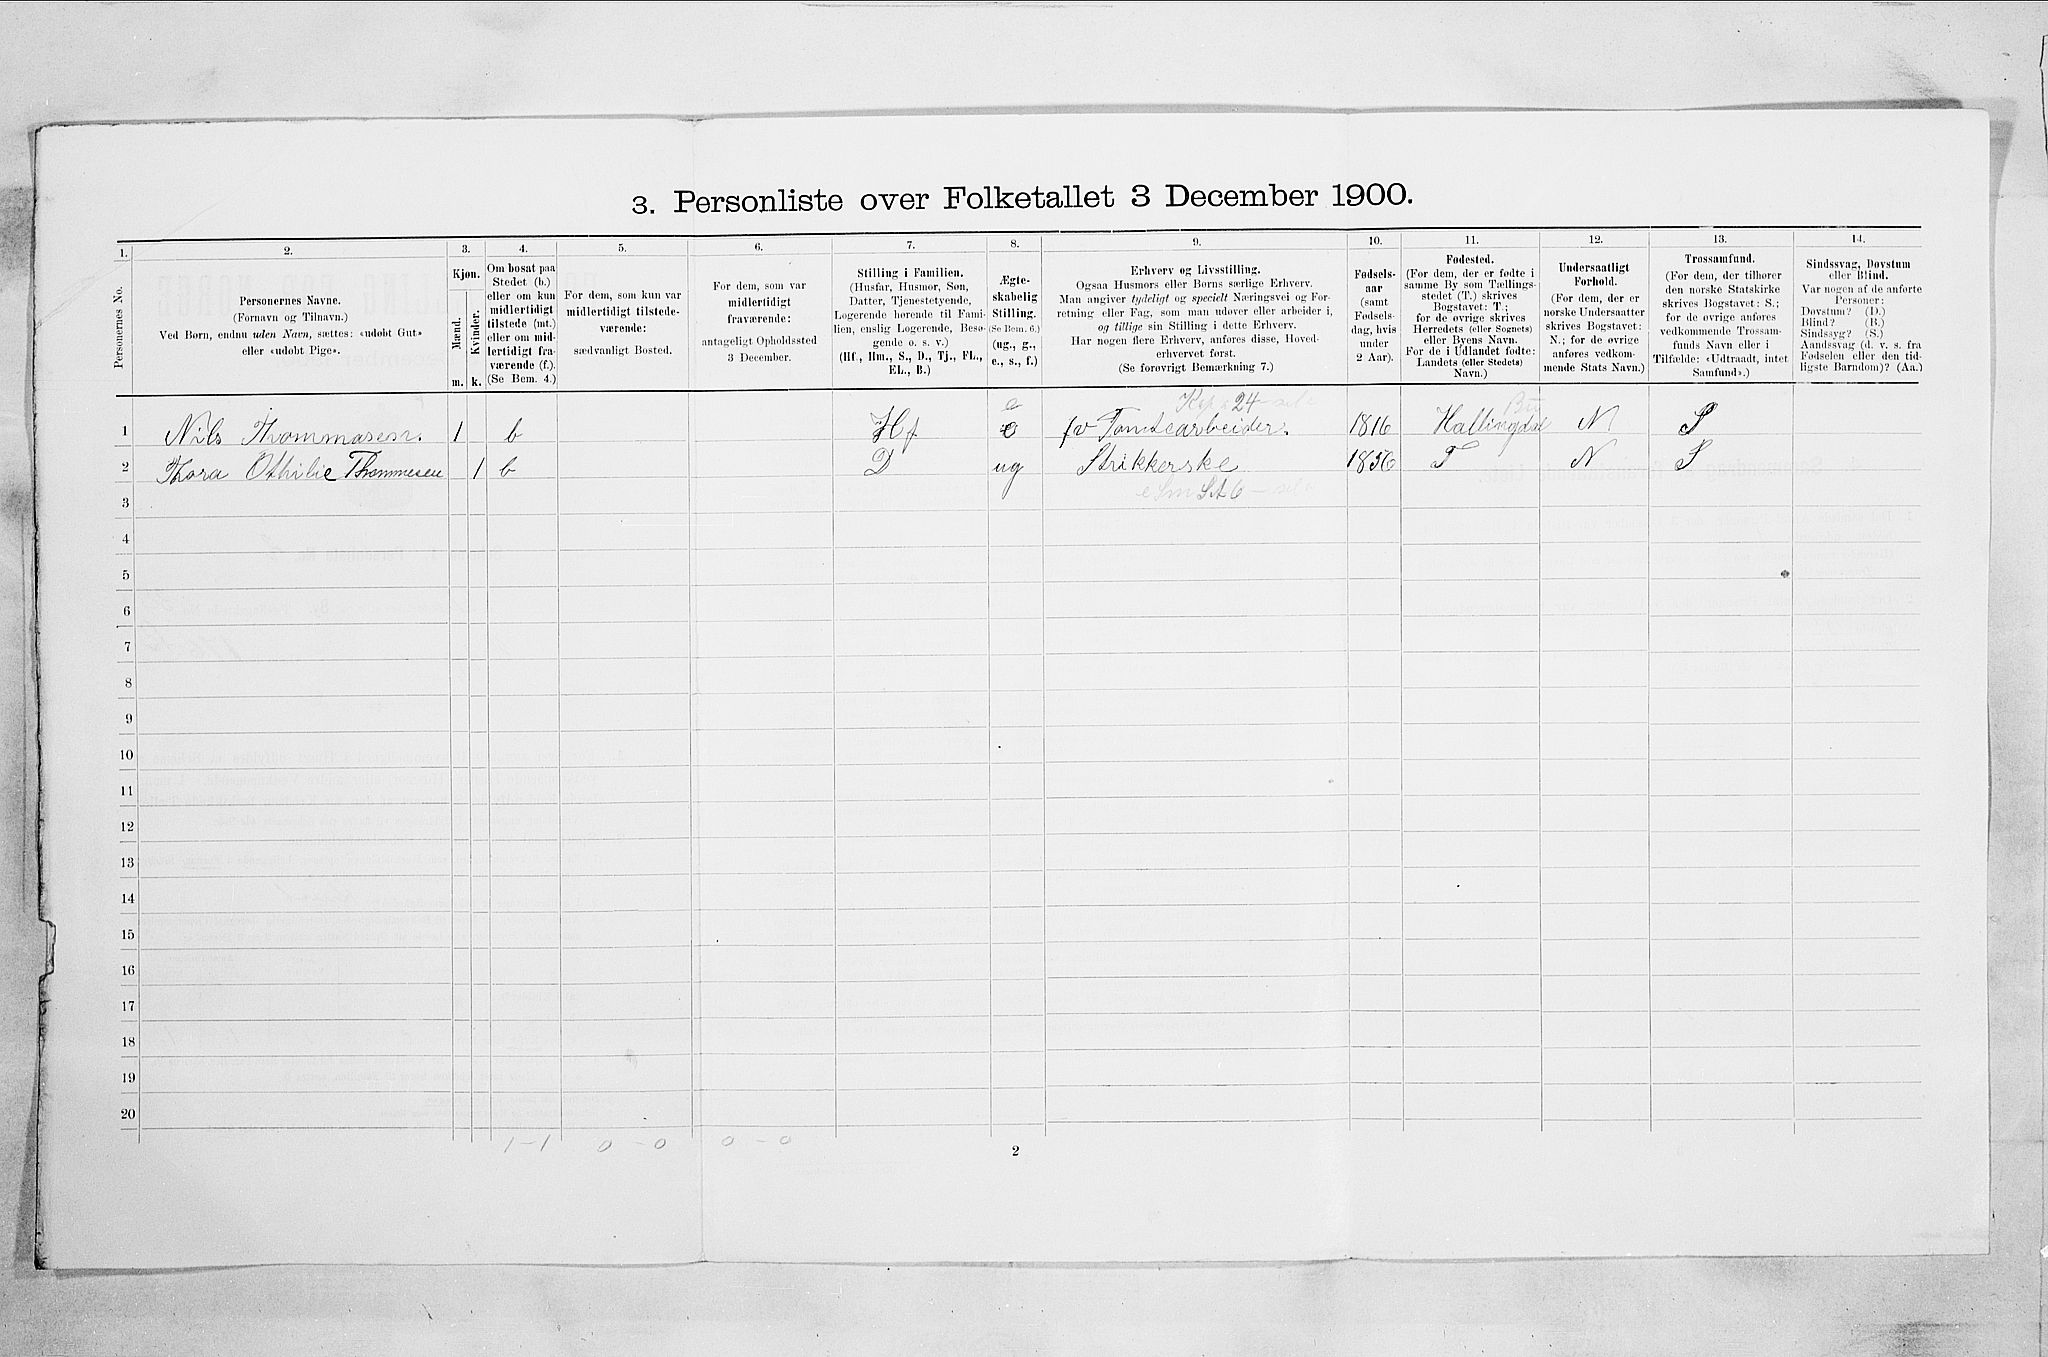 3. Personliste over Folketallet 3 December 1900.
1. 2. 3. 4. 5. 6. 7. 8. 9. 10. 11. 12. 13. 14.
Personernes No.
Personernes Navne.
(Fornavn og Tilnavn.)
Ved Børn, endnu uden Navn, sættes: «udøbt Gut»
eller «udøbt Pige».
Kjøn.
Mænd.
Kvinder.
m. k.
Om bosat paa
Stedet (b.)
eller om kun
midlertidigt
tilstede (mt.)
eller om mid-
lertidigt fra-
værende (f.).
(Se Bem. 4.)
For dem, som kun var
midlertidigt tilstede-
værende:
sædvanligt Bosted.
For dem, som var
midlertidigt
fraværende:
antageligt Opholdssted
3 December.
Stilling i Familien.
(Husfar, Husmor, Søn,
Datter, Tjenestetyende,
Logerende hørende til Fami-
lien, enslig Logerende, Besø-
gende o. s. v.)
(Hf., Hm., S., D., Tj., FL.,
EL., B.)
Ægte-
skabelig
Stilling.
(Se Bem. 6.)
(ug., g.,
e., s., f.)
Erhverv og Livsstilling.
Ogsaa Husmors eller Børns særlige Erhverv.
Man angiver tydeligt og specielt Næringsvei og For-
retning eller Fag, som man udøver eller arbeider i,
og tillige sin Stilling i dette Erhverv.
Har nogen flere Erhverv, anføres disse, Hoved-
erhvervet først.
(Se forøvrigt Bemærkning 7.)
Fødsels-
aar
(samt
Fødsels-
dag, hvis
under
2 Aar).
Fødested.
(For dem, der er fødte i
samme By som Tællings-
stedet (T.) skrives
Bogstavet: T.;
for de øvrige skrives
Herredets (eller Sognets)
eller Byens Navn.
For de i Udlandet fødte:
Landets (eller Stedets)
Navn.)
Undersaatligt
Forhold.
(For dem, der er
norske Undersaatter
skrives Bogstavet:
N.; for de øvrige
anføres vedkom-
mende Stats Navn.)
Trossamfund.
(For dem, der tilhører
den norske Statskirke
skrives Bogstavet: S.;
for de øvrige anføres
vedkommende Trossam-
funds Navn eller i
Tilfælde: «Udtraadt, intet
Samfund».)
Sindssvag, Døvstum
eller Blind.
Var nogen af de anførte
Personer:
Døvstum? (D.)
Blind? (B.)
Sindssyg? (S.)
Aandssvag (d. v. s. fra
Fødselen eller den tid-
ligste Barndom)? (Aa.)
e 24 Bu
1 Nils Thommasen. 1 b Hf e fv Tomtearbeider. 1816 Hallingdal N S
2 Thora Othilie Thommesen 1 b D ug Strikkerske 1856 T N S
3
4
5
6
7
8
9
10
11
12
13
14
15
16
17
18
19
20
1-1 0-0 0-0
2